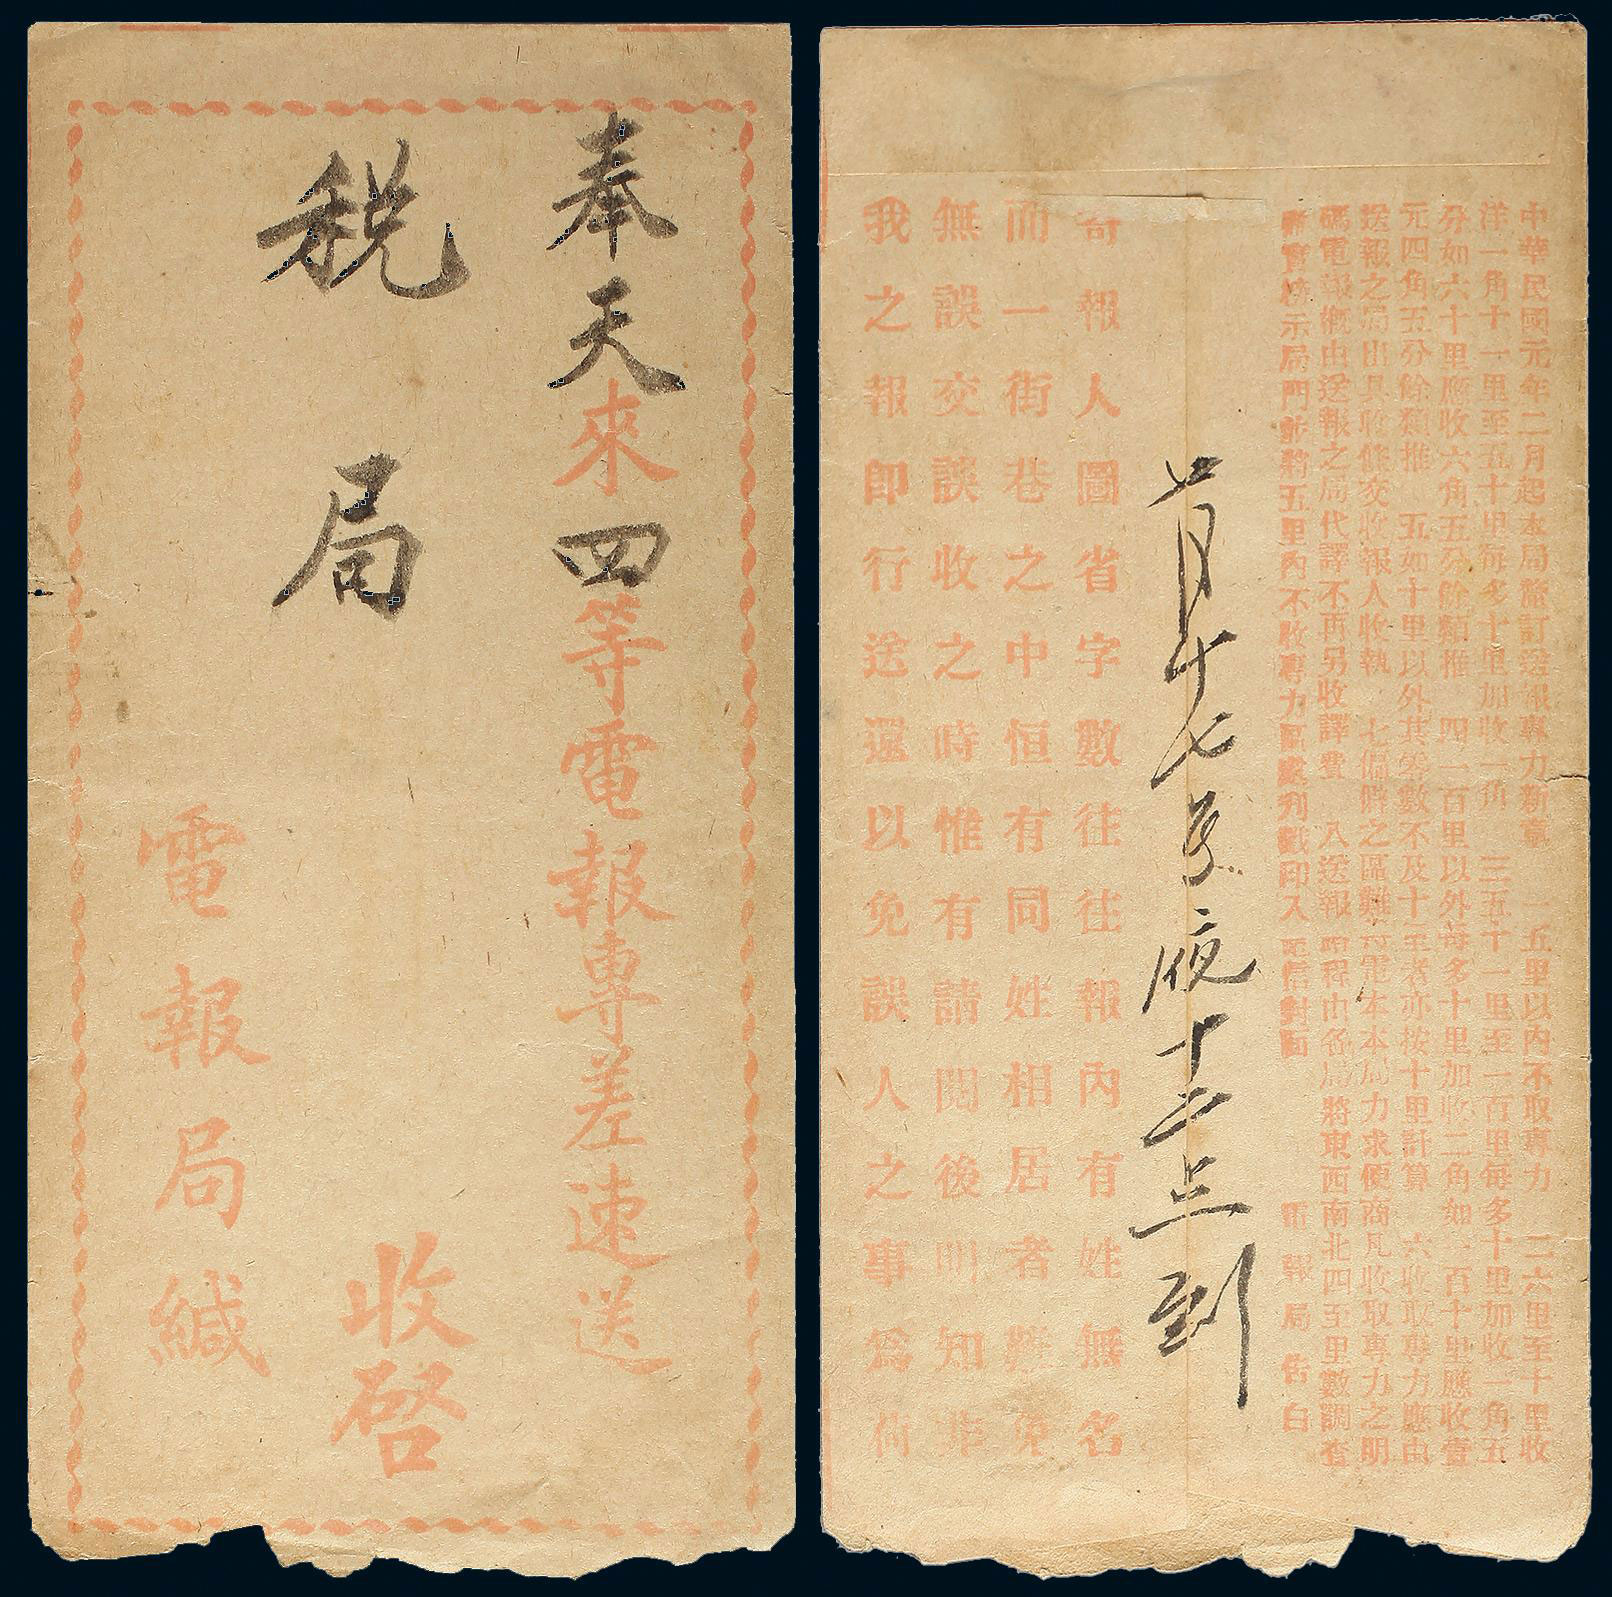 奉天來四等電報專差速送
稅局
收啓
電報局緘
中華民國元年二月起本局釐訂送報專力新章 一五里以內不取專力 二六里至十里收
洋一角十一里至五十里每多十里加收一角 三五十一里至一百里每多十里加收一角五
分如六十里應收六角五分餘類推 四一百里以外每多十里加收二角如一百十里應收壹
元四角五分餘類推 五如十里以外其零數不及十里者亦按十里計算 六收取專力應由
送報之局出具收條交收報人收執 七偏僻之區難 電本本局力求便商凡收取專力之明
碼電報槪由送報之局代譯不再另收譯費 八送報 程由各局將東西南北四至里數調查
實 示局門並將五里內不收專力區處列戳印入 信封面 電報局告白
寄報人圖省字數往往報內有姓無名
而一街巷之中恒有同姓相居者難免
無誤交誤收之時惟有請閱後明知非
我之報即行送還以免誤人之事爲荷
月十七 夜十二点到